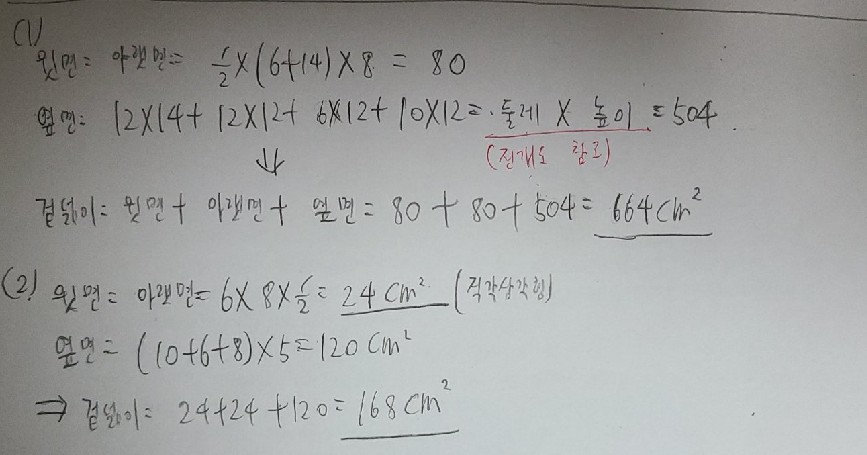 (1)
윗면= 아랫면= 1/2×(6+14)×8 = 80
옆면= 12×14+ 12×12+ 6×12+ 10×12= 둘레 × 높이 = 504
(전개도 참조)
⇓
겉넓이= 윗면+ 아랫면+ 옆면= 80+80+504= 664cm²
(2) 윗면= 아랫면= 6×8×1/2= 24cm² (직각삼각형)
옆면= (10+6+8)×5=120cm²
⇒ 겉넓이= 24+24+120= 168cm²